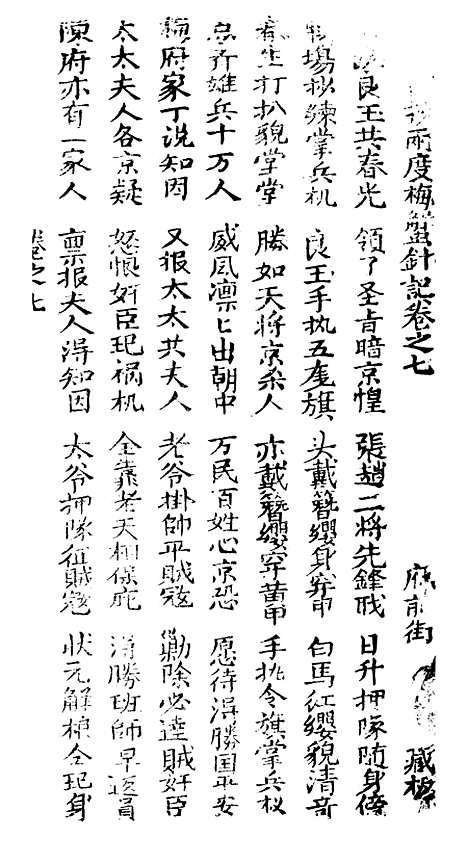 兩度梅蟹針記卷之七 府前街 藏板
良玉共春光 領了圣旨暗京惶 張趙二将先鋒戝 日升押隊随身傍
場操練掌兵机 良玉手执五色旗 头戴簪纓身穿甲 白馬红纓貌清奇
春生打扒貌堂堂 勝如天将京杀人 亦戴簪纓穿黄甲 手执令旗掌兵权
点齐雄兵十万人 威风凛匕出朝中 万民百姓心京恐 愿待淂勝国平安
府家丁说知因 又报太太共夫人 老爷掛帅平贼寇 勦除必達贼奸臣
太太夫人各京疑 怒恨奸臣玘祸机 全靠老天相保庇 淂勝班师早返員
陳府亦有一家人 禀报夫人淂知因 太爷押隊征贼寇 状元解粮仝玘身
卷之七